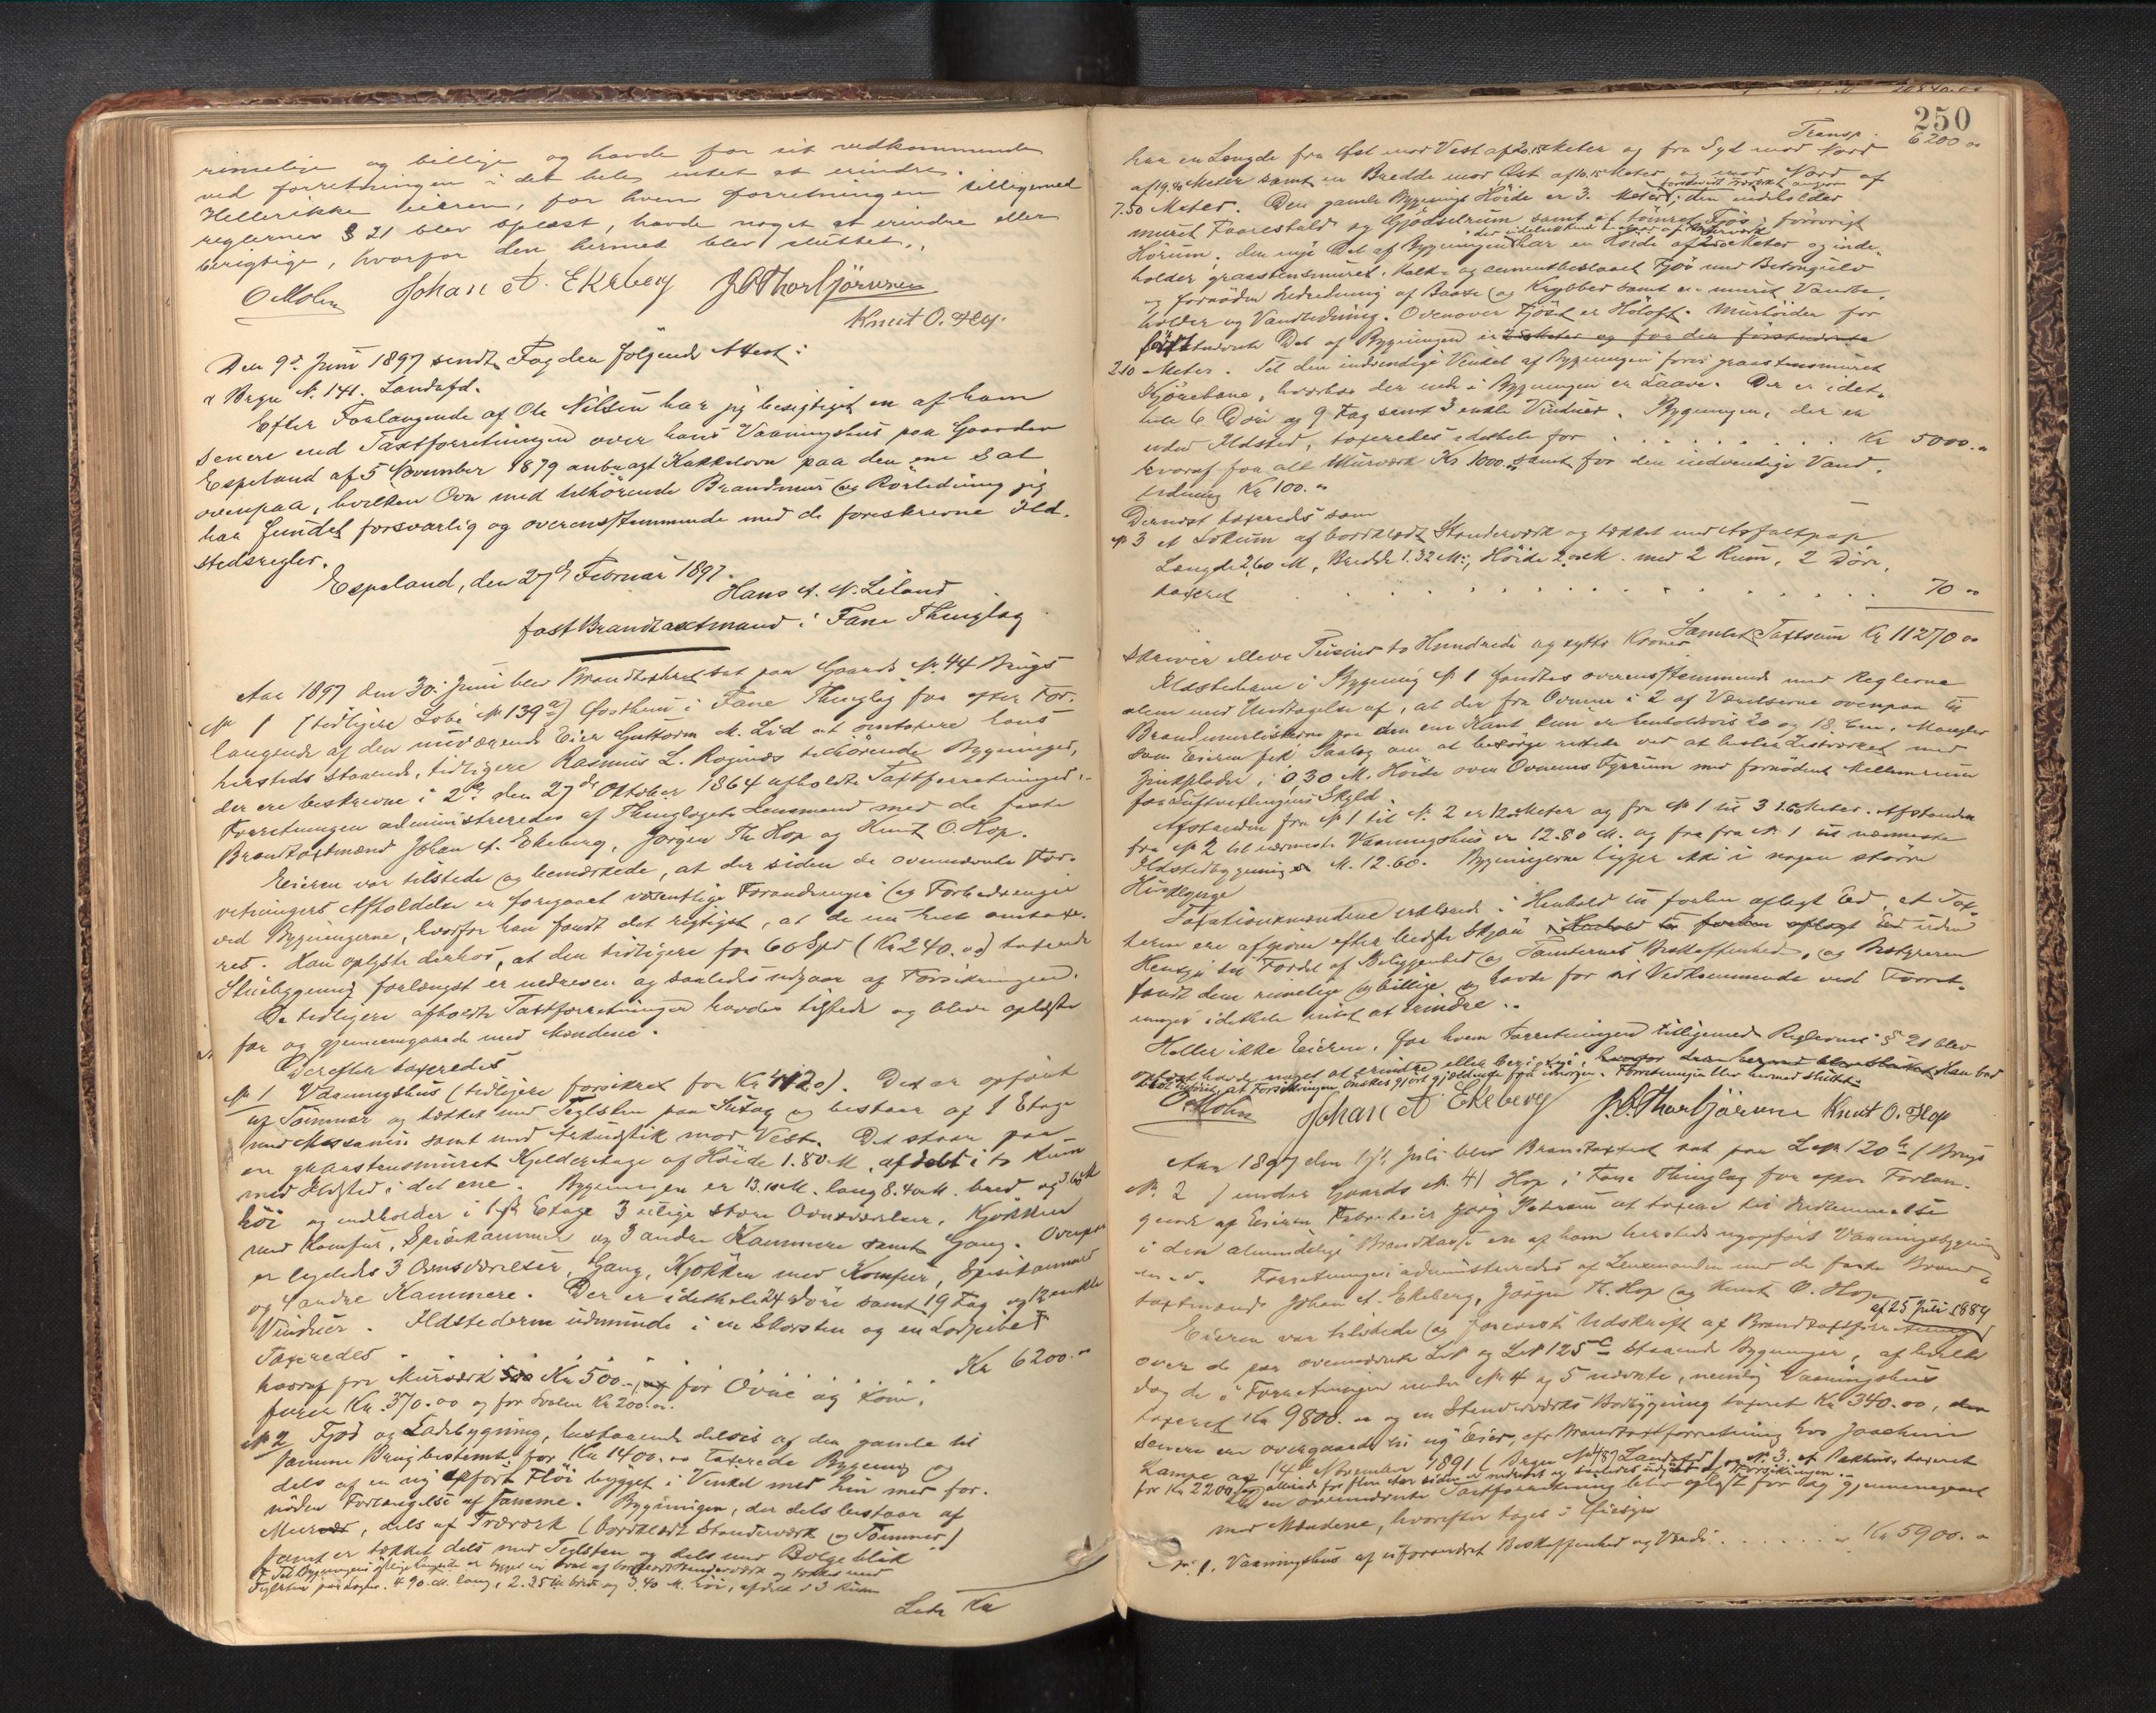 rimelige og billige og havde for sit vedkommende
ved forretningen i det hele intet at erindre.
Hellerikke eieren, for hvem forretningen tilligemed
reglernes § 21 blev oplæst, havde noget at erindre eller
berigtige, hvorfor den hermed blev sluttet.
O Molm Johan A. Ekeberg J. Thorbjörnsen
Knut O. Hop.
Den 9de Juni 1897 sendtes Fogden følgende Attest:
Brgu N. 141. Landafd.
Efter Forlangende af Ole Nilsen har jeg besigtiget en af ham
senere end Taxtforretningen over hans Vaaningshus paa Gaarden
Espeland af 5 November 1879 anbragt Kakkelovn paa den ene Sal
ovenpaa, hvilken Ovn med tilhörende Brandmur og Rörledning jeg
har fundet forsvarlig og overensstemmende med de foreskrevne Ild-
stedsregler.
Espeland, den 27de Februar 1897.
Hans A. N. Liland
fast Brandtaxtmand i Fane Thinglag
Aar 1897 den 30. Juni blev Brandtaxtret sat paa Gaards No 44 Brugs
No 1 (tidligere Löbe No 139a) i Fane Thinglag for efter For-
langende af den nuværende Eier Guttorm M. Lid at omtaxere hans
hersteds staaende, tidligere Rasmus L. tilhörende Bygninger,
der ere beskrevne i 2de den 27de Oktober 1864 afholdte Taxtforretninger.
Forretningen administreredes af Thinglagets Lensmand med de faste
Brandtaxtmænd Johan A. Ekeberg, Jörgen Th. Hop og Knut O. Hop.
Eieren var tilstede og bemærkede, at der siden de ovennævnte For-
retningers Afholdelse er foregaaet væsentlige Forandringer og Forbedringer
ved Bygningerne, hvorfor han fandt det rigtigst, at de nu helt omtaxe-
res. Han oplyste derhos, at den tidligere for 60 Spd (Kr 240.00) taxerede
Stuebygning forlængst er nedreven og saaledes udgaar af Forsikringen.
De tidligere afholdte Taxtforretninger havdes tilstede og bleve oplæste
for og gjennemgaaede med Mændene.
Derefter taxeredes
No 1 Vaaningshus (tidligere forsikret for Kr 1120). Det er opfört
af Tömmer og tækket med Teglsten paa Sutag og bestaar af 1 Etage
med Messanin samt med Arkudstik mod Vest. Det staar paa
en graastensmuret Kjelderetage af Höide 1.80 M. afdelt i to Rum
med Ildsted i det ene. Bygningen er 13.10 M. lang 8.40 M. bred og 3.65 M
höi og indholder i 1ste Etage 3 store Ovnsværelser, Kjökken
med Komfur, Spisekammer og 3 andre Kammere samt Gang. Ovenpaa
er ligeledes 3 Ovnsværelser, Gang, Kjökken med Komfur, Spisekammer
og 4 andre Kammere. Der er i dethele 24 Döre samt 19 Fag og 12 enkle
Vinduer. Ildstederne udmunde i en Skorsten og en Lodpibe.
Taxeredes . . . . . . . Kr 6200.00
hvoraf for Murværk Kr 500.-, for Ovne og Kom-
furer Kr. 370.00 og for Svalen Kr 200.00.
No 2 Fjös og Ladebygning, bestaaende delvis af den gamle til
samme Brug bestemte for Kr 1400.00 taxerede Bygning og
dels af en ny opfört Flöi bygget i Vinkel med hin med for-
nöden Forlængelse af samme. Bygningen, der dels bestaar af
Mur, dels af Træværk (bordklædt Standerværk og Tömmer)
samt er tækket dels med Teglsten og dels med Bölgeblik
Til Bygningens östlige Langside er bygget en Sval af bordklædt Standerværk og tækket med
Teglsten paa Lægter. 4.90 M. lang, 2.35 M bred og 3.40 M. höi, afdelt i 3 Rum
Lats Kr
250
Transp. 6200.00
har en Længde fra Öst mod Vest af 20.15 Meter og fra Syd mod Nord
af 19.90 Meter samt en Bredde mod Öst af 10.15 Meter og mod Nord af
7.50 Meter. Den gamle Bygnings Höide er 3. Meter; den indeholder
muret Faarestald og Gjödselrum samt et tömret Fjös, forövrigt
Hörum. Den nye Del af Bygningen har en Höide af Meter og inde-
holder graastensmuret, kalk- og cementbeslaaet Fjös med Betongulv
og fornöden Indredning af Baase og Krybber samt en muret Vandbe-
holder og Vandledning. Ovenover Fjöset er Höloft. Murhöiden for
sidstnævnte Del af Bygningen er
2.10 Meter. Til den indvendige Vinkel af Bygningen förer graastensmuret
Kjörebane, hvorhos der inde i Bygningen er Laave. Der er i det-
hele 6 Döre og 9 Fag samt 3 enkle Vinduer. Bygningen, der er
uden Ildsted, taxeredes i dethele for . . . . . . . Kr 5000.00
hvoraf for alt Murværk Kr 1000.00 samt for den indvendige Vand-
ledning Kr 100.00
Dernæst taxeredes som
No 3 et Lokum af bordklædt Standerværk og tækket med Asfaltpap
Længde 2.60 M, Bredde 1.32 M., Höide 2.00 M. med 2 Rum, 2 Döre,
taxeret . . . . . . . . . . . . . 70.00
Samlet Taxtsum Kr 11270.00
skriver elleve Tusinde to Hundrede og sytti Kroner.
Ildstederne i Bygning No 1 fandtes overensstemmende med Reglerne
alene med Undtagelse af, at der fra Ovnene i 2 af Værelserne ovenpaa til
Brandmurlisterne paa den ene Kant kun er henholdsvis 20 og 18 Cm., Mangler
som Eieren fik Paalæg om at besörge rettede ved at beslaa Listværket med
Zinkplader i 0,30 M. Höide over Ovnenes Fyrrum med fornödent Mellemrum
for Luftvexlingens Skyld.
Afstanden fra No 1 til No 2 er 12.00 Meter og fra No 1 til 3 1.60 Meter. Afstanden
fra No 2 til nærmeste Vaaningshus er 12.80 M. og fra No 1 til nærmeste
Ildstedbygning M. 12.60. Bygningerne ligger ikke i nogen större
Husklynge
Taxationsmændene erklærede i Henhold til forhen aflagt Ed, at Tax-
terne ere afgivne efter bedste Skjön uden
Hensyn til Fordel af Beliggenhed og Tomternes Beskaffenhed, og Bestyreren
fandt dem rimelige og billige og havde for sit Vedkommende ved Forret-
ningen i dethele intet at erindre.
Heller ikke Eieren, for hvem Forretningen tilligemed Reglernes § 21 blev
oplæst havde noget at erindre eller berigtige, hvorfor den hermed blev sluttet. Han bad
blot tilföiet, at Forsikringen önskes gjort gjældende fra imorgen. Forretningen blev hermed sluttet.
O Molm Johan A Ekeberg J. Thorbjörnsen Knut O. Hop
Aar 1897 den Juli blev Brandtaxtret sat paa L.No 120 (Brugs
No. 2) under Gaards No. 41 Hop i Fane Thinglag for efter Forlan-
gende af Eieren at taxere til Indlemmelse
i den almindelige Brandkasse en af ham hersteds nyopfört Vaaningsbygning
m.v. Forretningen administreredes af Lensmanden med de faste Brand-
taxtmænd Johan A. Ekeberg, Jörgen Th. Hop og Knut O. Hop.
Eieren var tilstede og foreviste Udskrift af Brandtaxtforretning af 25 Juli 1884
over de paa ovennævnte L.No og L.No 125c staaende Bygninger, af hvilke
dog de i Forretningen under No 4 og 5 nævnte, nemlig Vaaningshus
taxeret Kr 9800.00 og en Standerværks Bodbygning taxeret Kr 340.00,
senere ere overgaaede til ny Eier, cfr Brandtaxtforretning hos Joachim
Lampe af 14de November 1891 (Brgu No 487 Landafd) og No 3. et Pakhus, taxeret
for Kr 2200, allerede for flere Aar siden er nedrevet og saaledes udgaaet af Forsikringen.
Den ovennævnte Taxtforretning blev oplæst for og gjennemgaaet
med Mændene, hvorefter toges i Öiesyn
No 1. Vaaningshus af uforandret Beskaffenhed og Værdi . . . . . Kr 5900.00